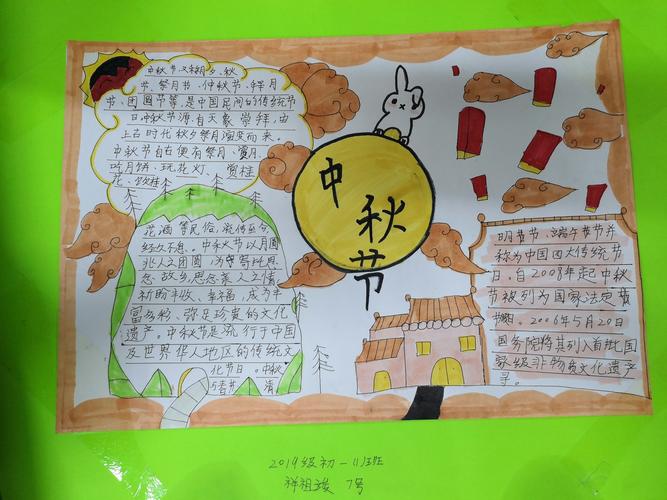 中秋节又称月夕、秋
节、祭月节、仲秋节、拜月
节、团圆节等,是中国民间的传统节
日。中秋节源自天象崇拜,由
上古时代秋夕祭月演变而来。
中秋节自古便有祭月、赏月、
吃月饼、玩花灯、赏桂
花、饮桂
花酒等民俗,流传至今,
经久不息。中秋节以月圆
兆人之团圆,为寄托思
念故乡,思念亲人之情,
祈盼丰收、幸福,成为丰
富多彩、弥足珍贵的文化
遗产。中秋节是流行于中国
及世界华人地区的传统文
化节日。中秋
与春节、清
中秋节
明节、端午节并
称为中国四大传统节
日。自2008年起中秋
节被列为国家法定节
假日。2006年5月20日
国务院将其列入首批国
家级非物质文化遗产
2019级初一11班
祖 7号